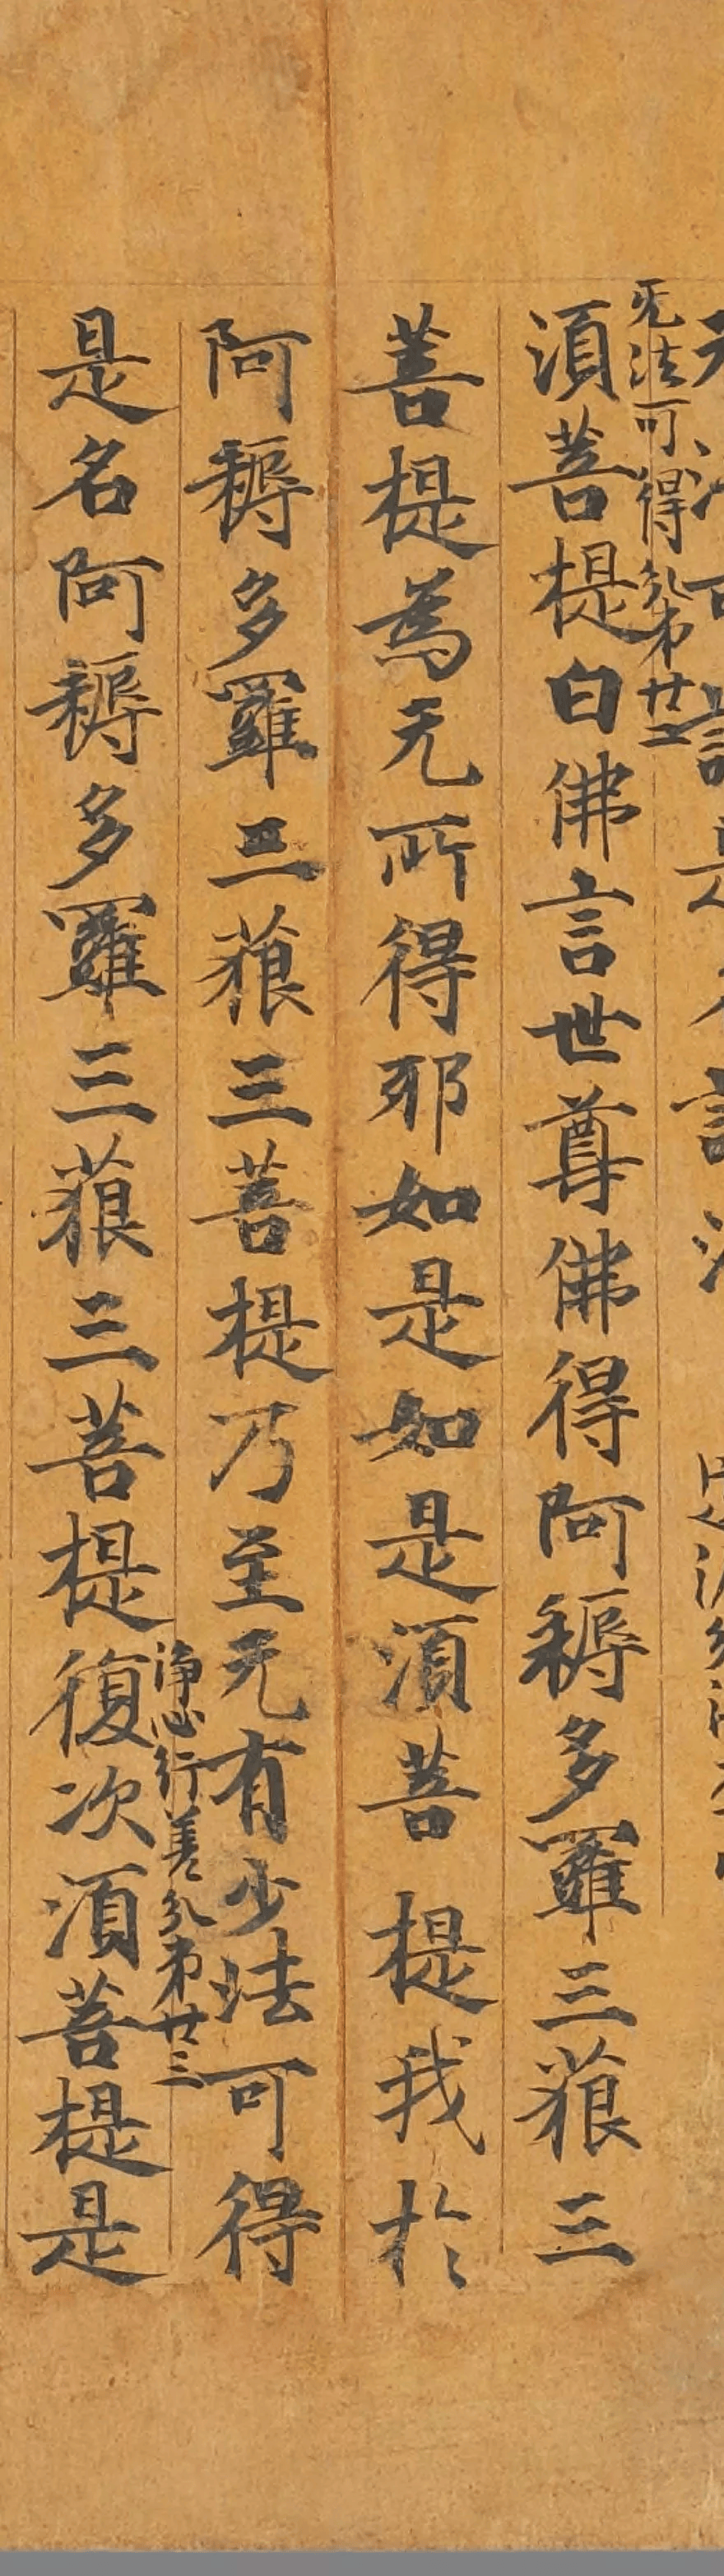 无法可得分弟廿二
湏菩提白佛言世尊佛得阿耨多羅三藐三
菩提為无所得耶如是如是湏菩提我於
阿耨多羅三藐三菩提乃至无有少法可得
淨心行善分弟廿三
是名阿耨多羅三藐三菩提復次湏菩提是